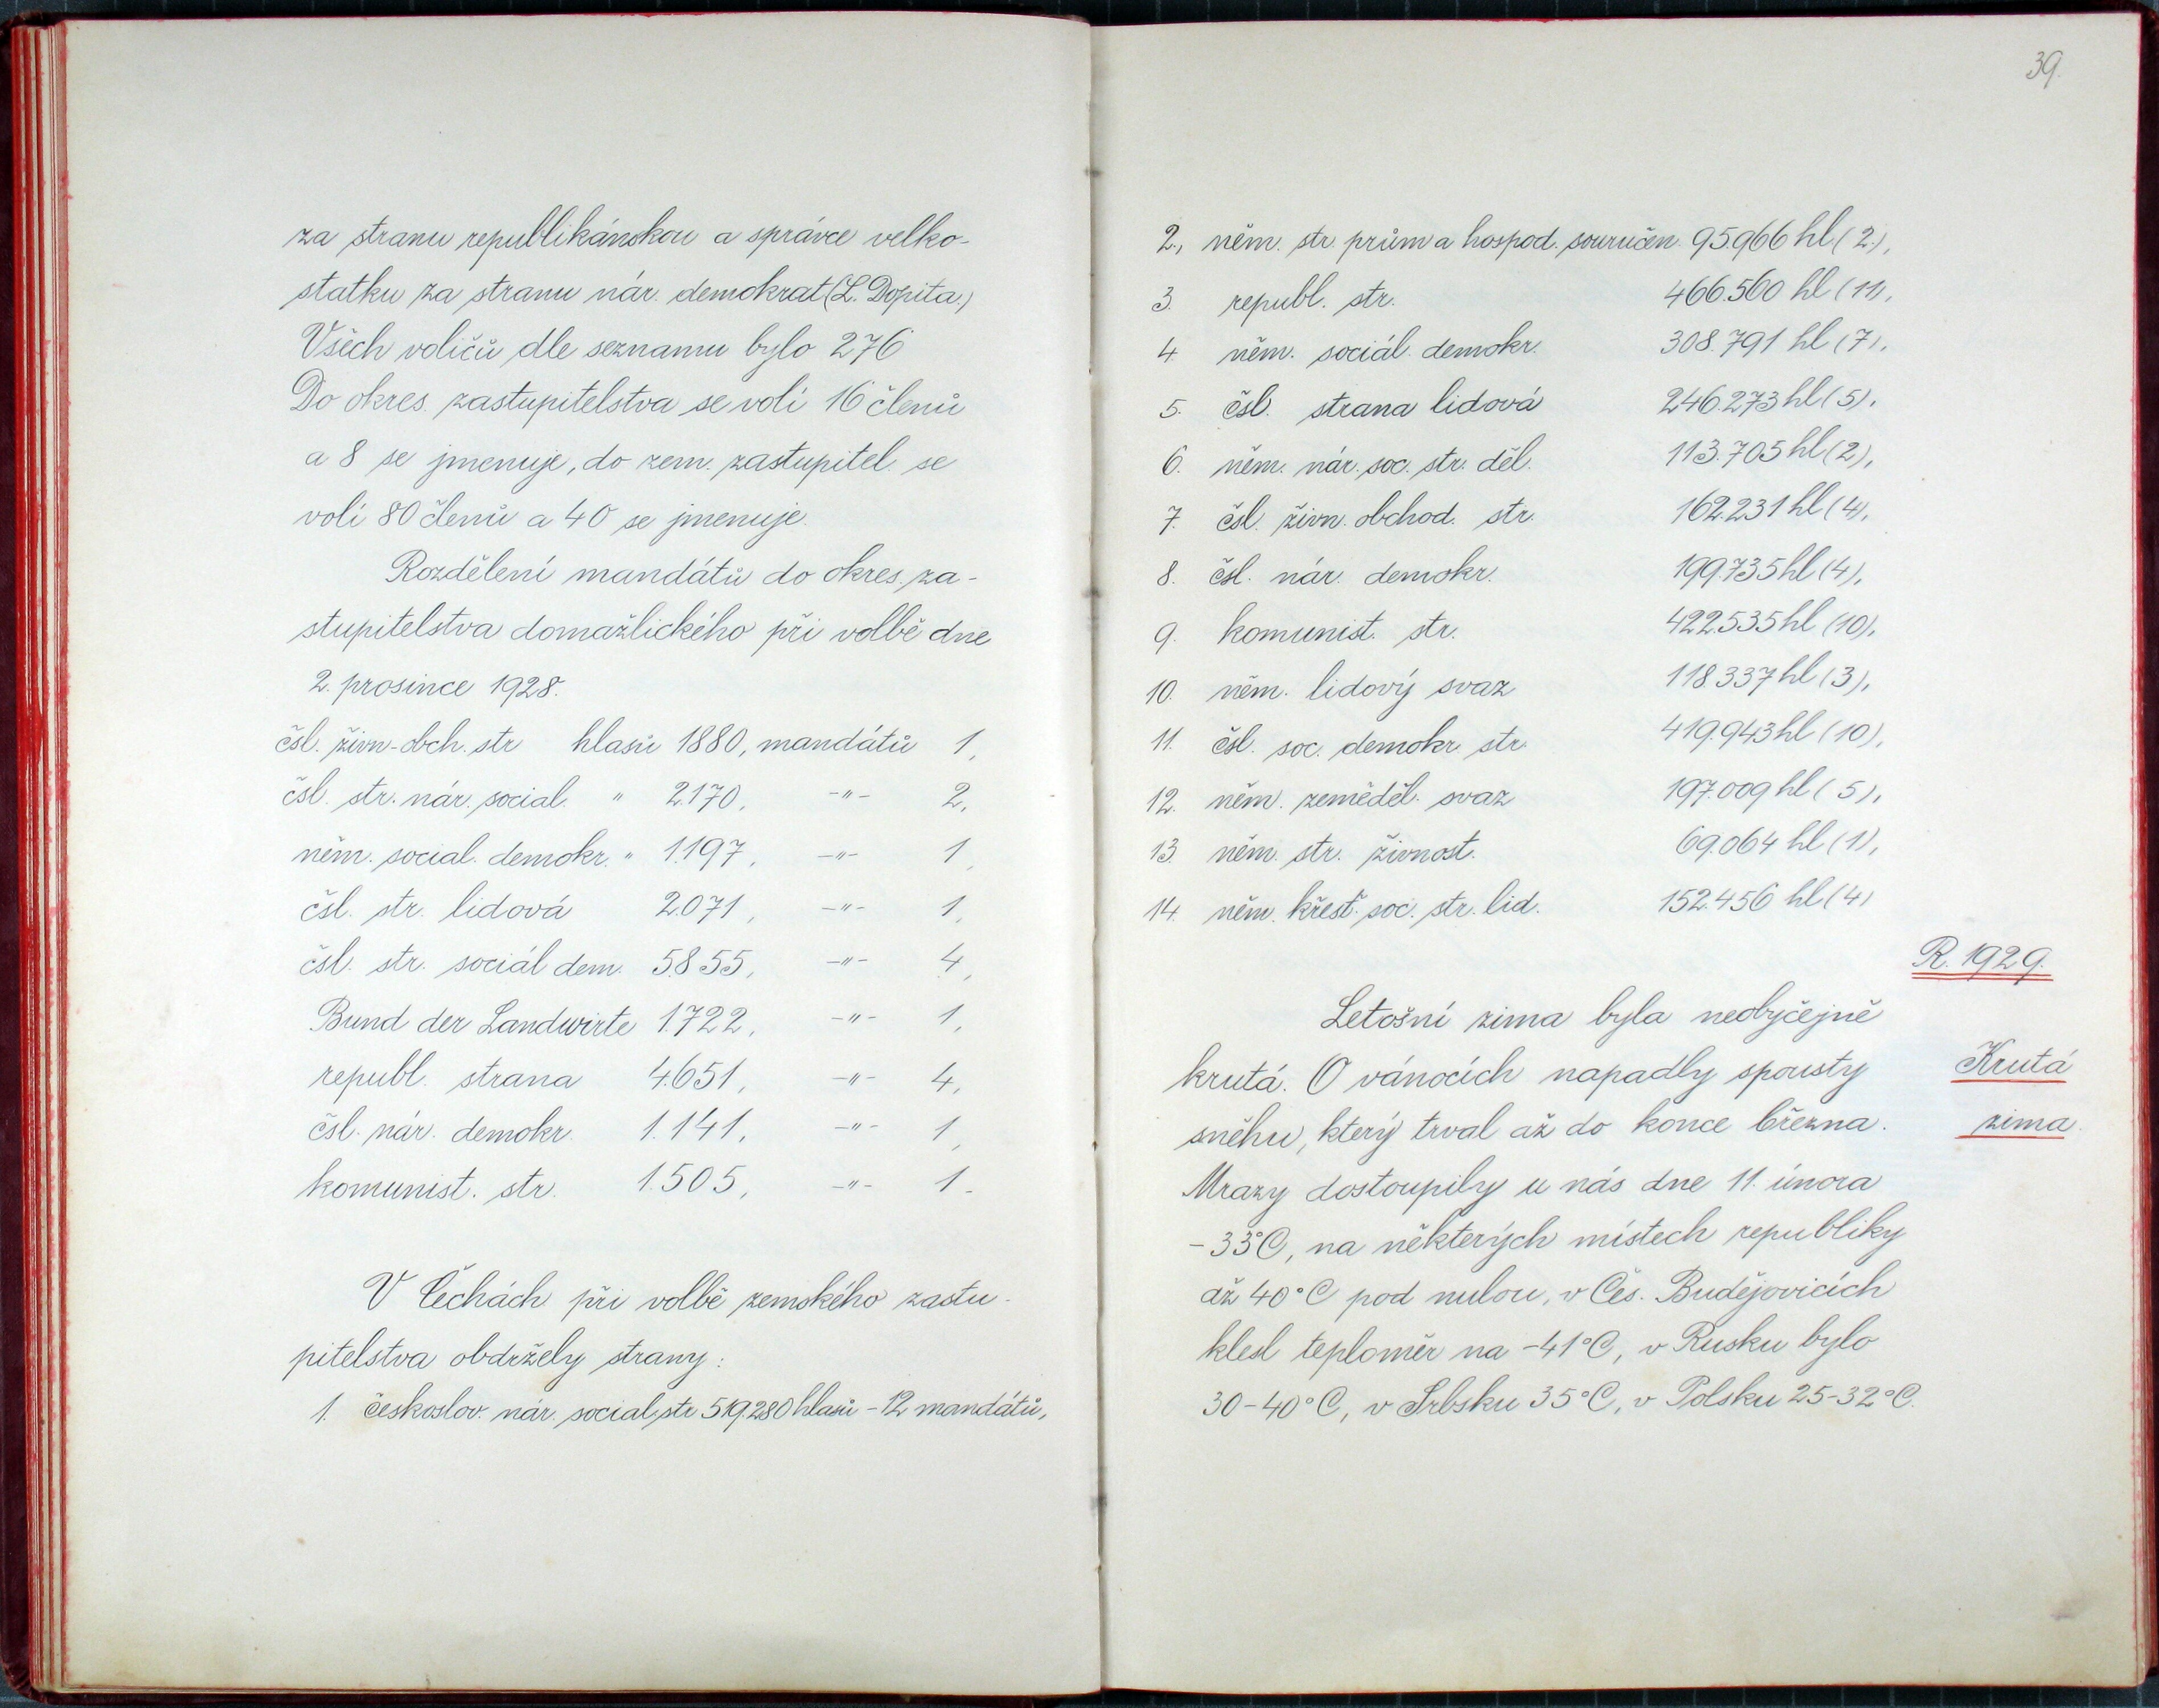 za stranu republikánskou a správce velko-
statku za stranu nár. demokrat (L. Dopita.)
Všech voličů dle seznamu bylo 276
Do okres. zastupitelstva se volí 16 členů
a 8 se jmenuje, do zem. zastupitel. se
volí 80 členů a 40 se jmenuje.
Rozdělení mandátů do okres. za-
stupitelstva domažlického při volbě dne
2. prosince 1928.
čsl. živn-obch. str hlasů 1880, mandátů 1,
čsl. str. nár. social. " 2.170, -"- 2,
něm. social. demokr. " 1.197, -"- 1,
čsl. str. lidová 2.071, -"- 1,
čsl. str. sociál dem. 5.855, -"- 4,
Bund der Landwirte 1.722, -"- 1,
republ. strana 4.651, -"- 4,
čsl. nár. demokr. 1.141, -"- 1,
komunist. str. 1.505, -"- 1.
V Čechách při volbě zemského zastu-
pitelstva obdržely strany:
1. českoslov. nár. social, str 519.280 hlasů - 12 mandátů,
39.
2., něm. str. prům a hospod. souručen. 95.966 hl (2.),
3. republ. str. 466.560 hl (11),
4. něm. sociál. demokr. 308.791 hl (7),
5. čsl. strana lidová 246.273 hl (5),
6. něm. nár. soc. str. děl. 113.705 hl (2),
7. čsl. živn. obchod. str. 162.231 hl (4),
8. čsl. nár. demokr. 199.735 hl (4),
9. komunist. str. 422.535 hl (10),
10. něm. lidový svaz 118.337 hl (3),
11. čsl. soc. demokr. str. 419.943 hl (10),
12. něm. zeměděl. svaz 197.009 hl (5),
13. něm. str. živnost. 69.064 hl (1),
14. něm. křesť. soc. str. lid. 152.456 hl (4)
R. 1929.
Letošní zima byla neobyčejně
krutá. O vánocích napadly spousty
Krutá
sněhu, který trval až do konce března.
zima.
Mrazy dostoupily u nás dne 11. února
-33°C, na některých místech republiky
až 40°C pod nulou, v Čes. Budějovicích
klesl teploměr na -41°C, v Rusku bylo
30-40°C, v Srbsku 35°C, v Polsku 25-32°C.